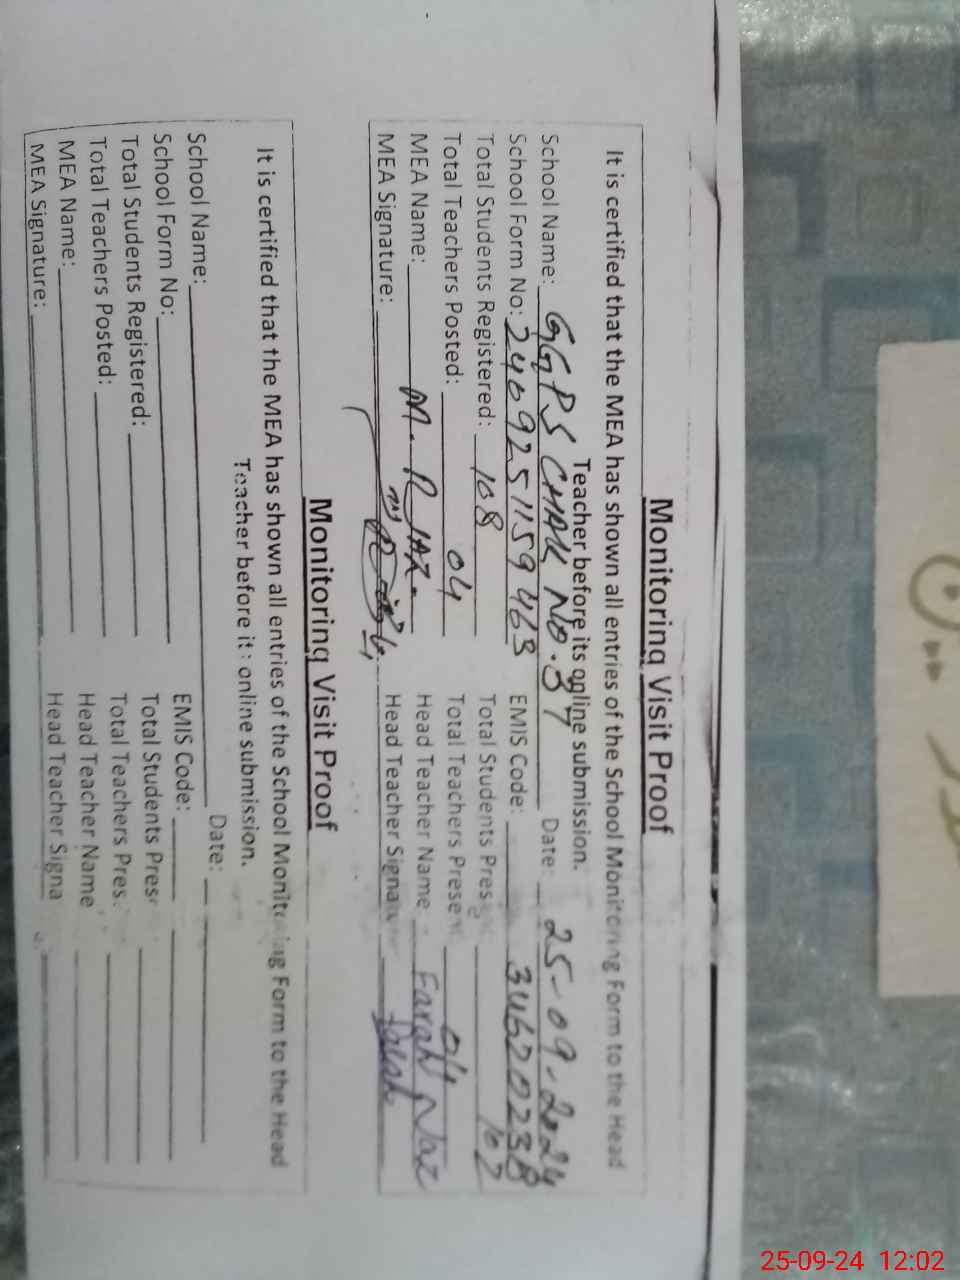 Monitoring Visit Proof
It is certified that the MEA has shown all entries of the School Monitoring Form to the Head
Teacher before its online submission.
School Name: GGPS CHAK NO. 37 Date: 25-09-2024
School Form No: 2409251159463 EMIS Code: 34620238
Total Students Registered: 108 Total Students Pres 107
Total Teachers Posted: 04 Total Teachers Prese 04
MEA Name: M. RIAZ. Head Teacher Name Farah Naz
MEA Signature: Head Teacher Signature Farah
Monitoring Visit Proof
It is certified that the MEA has shown all entries of the School Monitoring Form to the Head
Teacher before it: online submission.
School Name: Date:
School Form No: EMIS Code:
Total Students Registered: Total Students Pres
Total Teachers Posted: Total Teachers Pres
MEA Name: Head Teacher Name
MEA Signature: Head Teacher Signa
25-09-24 12:02